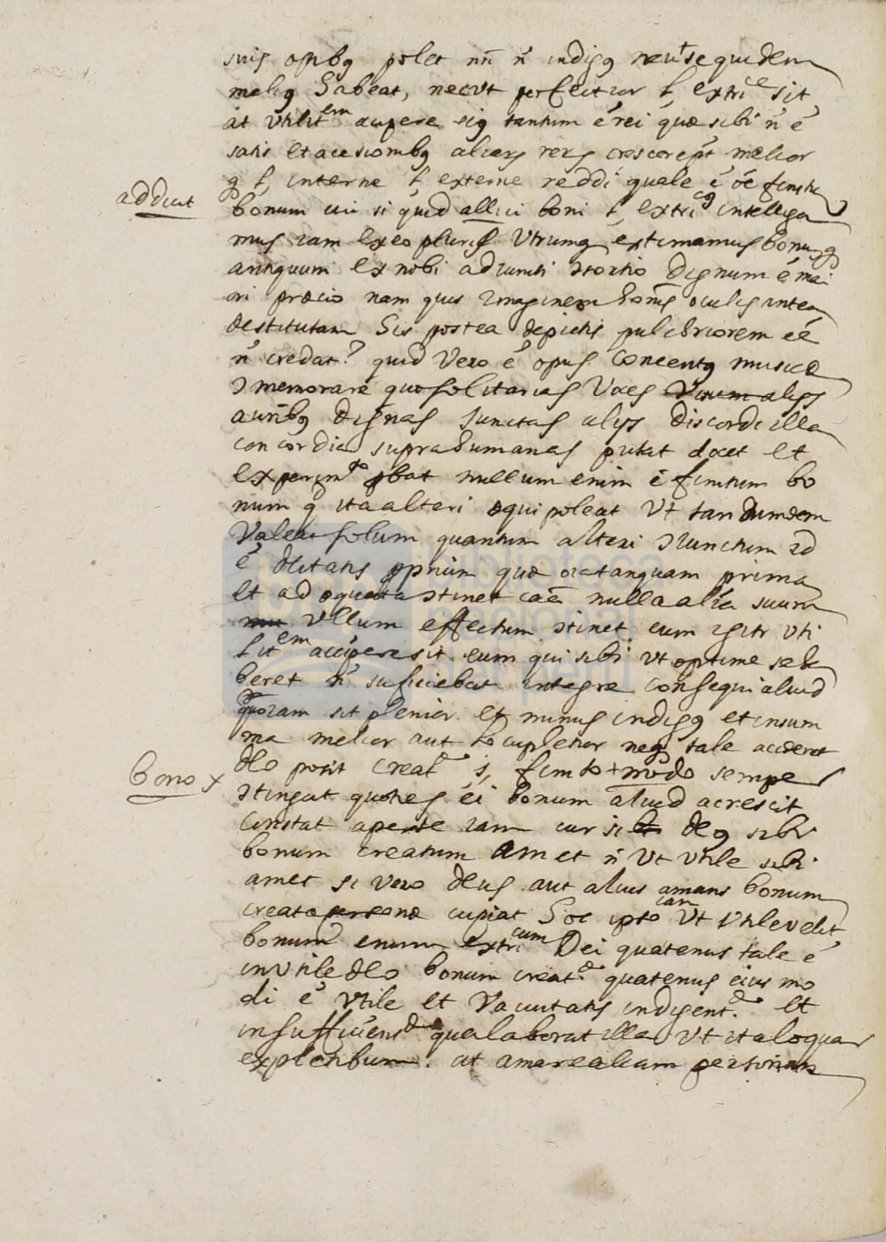 suis opibq pollet nn̄ n̄ indigq neutsequidem
meliq habeat, necvt perficitur l extrice sit
at vtilitem accipere sig tantum ē rei quæ sibi n̄ ē
satis et accesionibq aliarq rerq crescere pt melior
q l, interne l externe reddi quale ē oē finitu
addicit
bonum cui si quid allici boni l, extricq intelliga
mus iam ex eo pluris vtrumq extimamus bonumq
antiquum ex nobi adiuncti ɔsortio dignum ē mai
ori præcio nam quis imaginem hominis oculis antea
destitutam his postea depictis pulchriorem eē
n̄ credat? quid vero ē opus concentq musicæ
ɔmemorare quæ solitarias voces alijs
auribq dignas junctas alijs discordi illa
concordia supra humanas putat docet et
experimto pbat nullum enim ē finitum bo
num q ita alteri æquipoleat vt tandumdem
valeat solum quantum alteri ɔiunctum id
ē dēitatis pprium quæ tanquam prima
et adæquata ɔtinet caā nulla alia suum
vllum effectum ɔtinet cum igitr vti
litem accipere sit eum qui sibi vt optime seha
beret n̄ suficiebat integre consequi aliud
quoiam sit plenior et minus indigq et insum
ma melior aut locupletior neq tale accidere
dēo posit creato s, finito modo semper
bono x
ɔtingat quoties ei bonum aliud acrescit
constat aperte iam cur si deq sibi
bonum creatum amet n̄ vt vtile sibi
amet si vero deus aut alius amans bonum
creatæ personæ cupiat hoc ipso iam vt vtile velit
bonum enim extricum Dei quatenus tale ē
invtile dēo bonum creato quatenus eius mo
di ē vtile et vacuitatis indigento et
insufficiensd qua laborat illa vt ita loquar
expletibum. at amare aliam personam